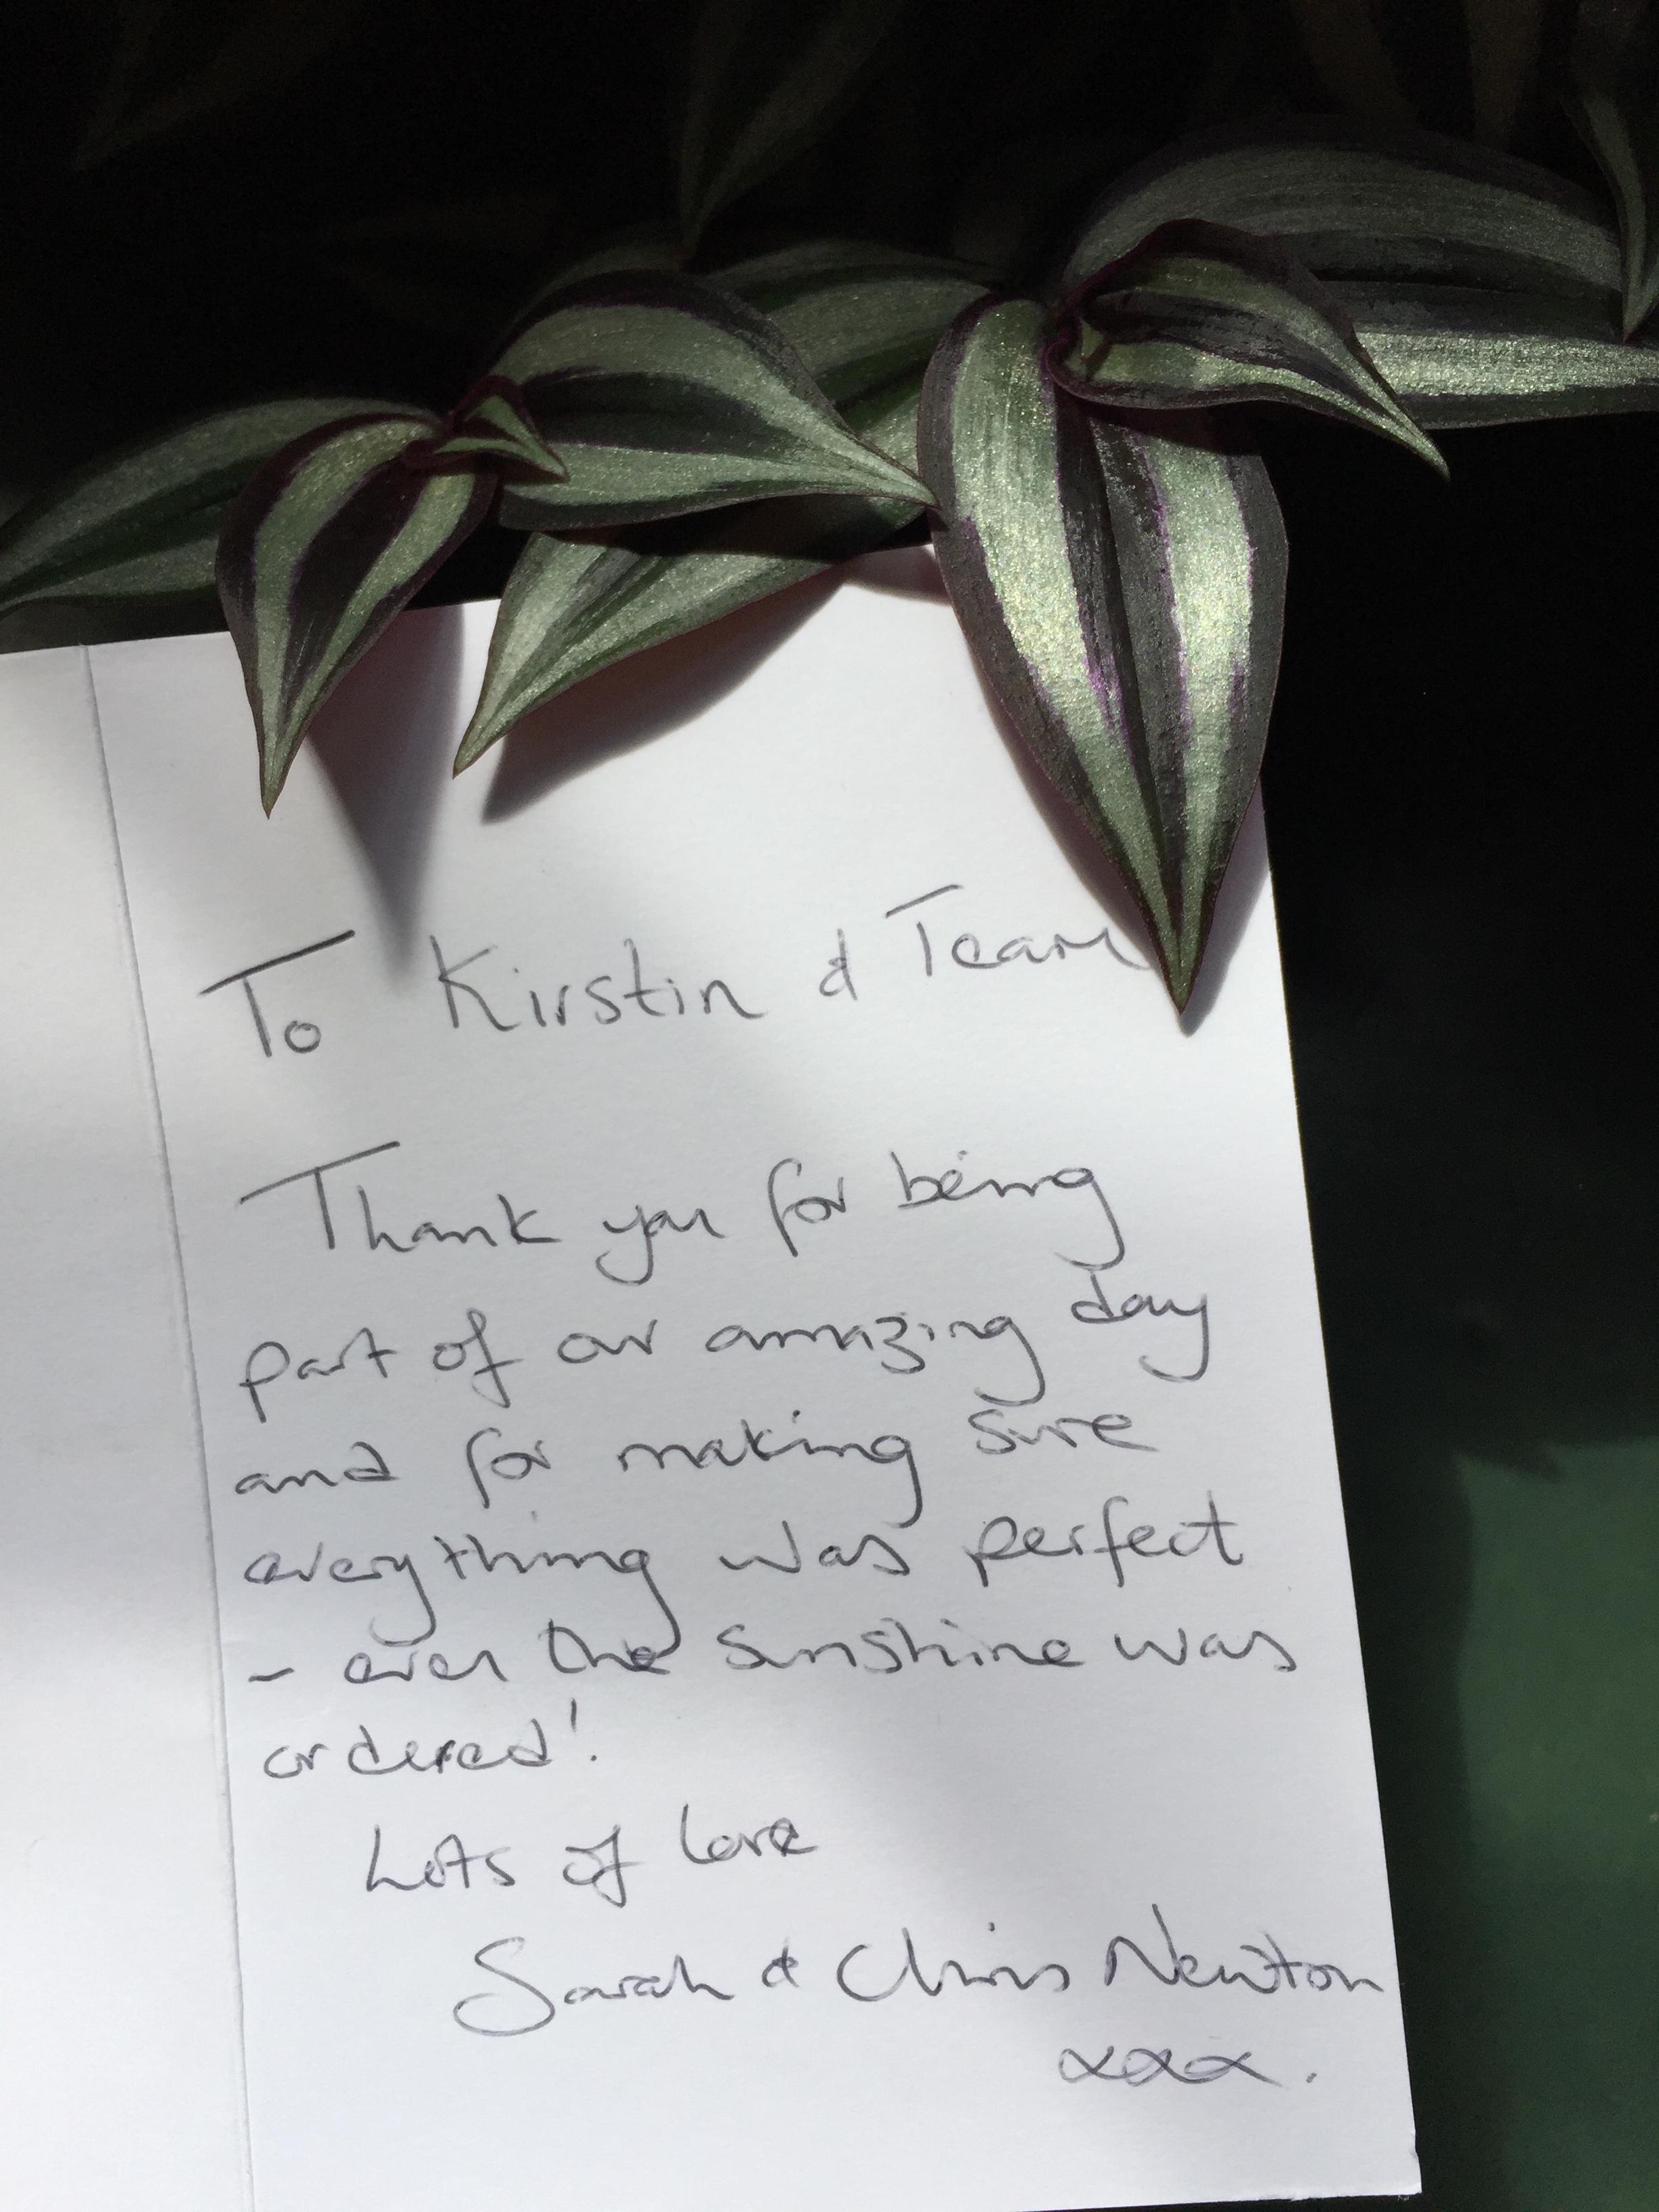 To Kirstin & Team
Thank you for being
part of our amazing day
and for making sure
everything was perfect
- even the sunshine was
ordered!
Lots of love
Sarah & Chris Newton
xxx.